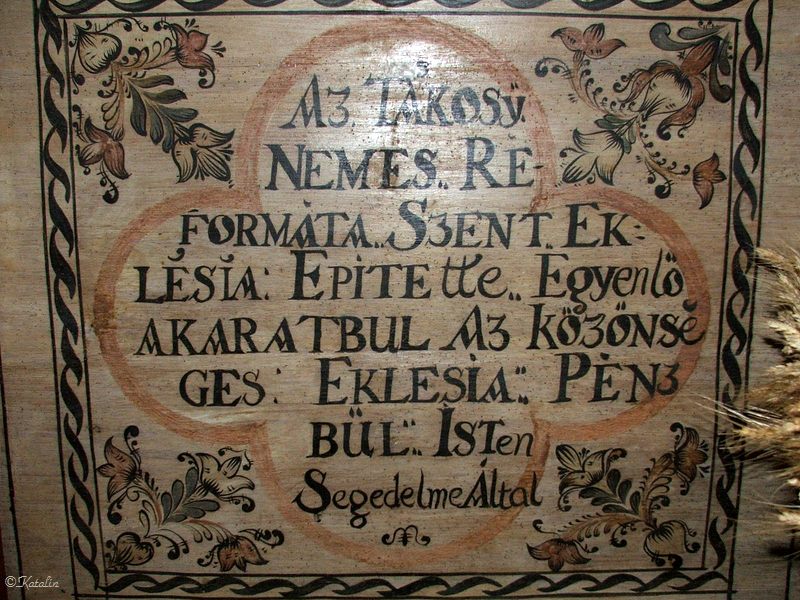 Az TÁKOSY
NEMES.. RE-
FORMÁTA.. SZENT.. EK-
LÉSIA: EPITETte.. Egyenlö
AKARATBUL AZ KÖZÖNSÉ
GES: EKLESIA.. PÉNZ
BÜL.. ISTen
SegedelmeÁltal
©Katalin